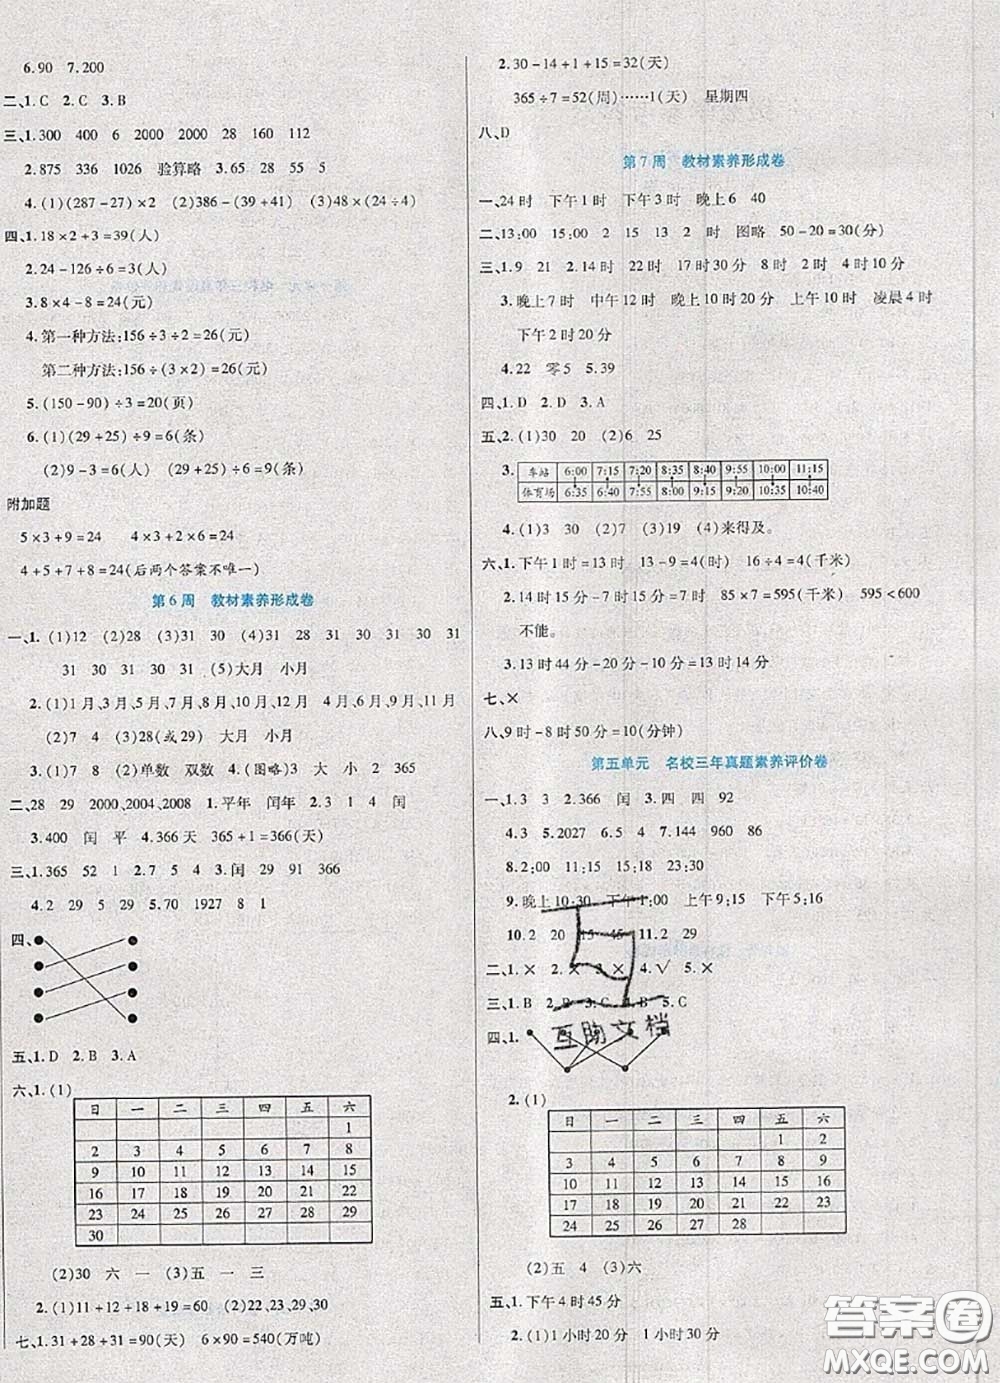 6.90 7.200
二、1.C 2.C 3.B
三、1.300 400 6 2000 2000 28 160 112
2.875 335 1026 验算略 3.65 28 55 5
4.(1)(287-27)×2 (2)386-(39+41) (3)48×(24÷4)
四、1.18×2+3=39(人)
2.24-126÷6=3(人)
3.8×4-8=24(元)
4.第一种方法:156÷3÷2=26(元)
第二种方法:156÷(3×2)=26(元)
5.(150-90)÷3=20(页)
6.(1)(29+25)÷9=6(条)
(2)9-3=6(条) (29+25)÷6=9(条)
附加题
5×3+9=24 4×3+2×6=24
4+5+7+8=24(后两个答案不唯一)
第6周 教材素养形成卷
一、1.(1)12 (2)28 (3)31 30 (4)31 28 31 30 31 30 31
31 30 31 30 31 (5)大月 小月
2.(1)1月、3月、5月、7月、8月、10月、12月 4月、6月、9月、11月
(2)7 4 (3)28(或29) 大月 小月
3.(1)7 (2)单数 双数 4.(图略)3 大 小 2 365
二、28 29 2000、2004、2008 1.平年 闰年 2.1 4 闰
3.400 闰 平 4.366天 365+1=366(天)
三、1.365 52 1 2.7 5 4 3.闰 29 91 366
4.2 29 5 29 5.70 1927 8 1
四、
五、1.D 2.B 3.A
六、1.(1)
日 一 二 三 四 五 六
1
2 3 4 5 6 7 8
9 10 11 12 13 14 15
16 17 18 19 20 21 22
23 24 25 26 27 28 29
30
(2)30 六 一 (3)五 一 三
2.(1)11+12+18+19=60 (2)22、23、29、30
七、1.31+28+31=90(天) 6×90=540(万吨)
2.30-14+1+15=32(天)
365÷7=52(周)……1(天) 星期四
八、D
第7周 教材素养形成卷
一、24时 下午1时 下午3时 晚上6 40
二、13:00 15:00 2 15 13 2时 图略 50-20=30(分)
三、1.9 21 2.14时 22时 17时30分 8时 2时 12时
3.晚上7时 中午12时 晚上10时 上午10时 凌晨4时
下午2时20分
4.22 零5 5.39
四、1.D 2.D 3.A
五、2.(1)30 20 (2)6 25
3.
车站 6:00 7:15 7:20 8:35 8:40 9:55 10:00 11:15
体育场 6:35 6:40 7:55 8:00 9:15 9:20 10:35 10:40
4.(1)3 30 (2)7 (3)19 (4)来得及。
六、1.下午1时=13时 13-9=4(时) 16÷4=4(千米)
2.下午1时30分+5时30分=7(时) 85×7=595(千米) 595<600
不能。
3.13时44分-20分-10分=13时14分
七、×
八、9时-8时50分=10(分钟)
第五单元 名校三年真题素养评价卷
一、1.3 3 2.366 闰 3.四 四 92
4.3 5.2027 6.5 4 7.144 960 86
8.2:00 11:15 15:18 23:30
9.晚上10:30 下午1:00 上午9:15 下午5:16
10.2 20 15 45 11.2 29
二、1.× 2.× 3.× 4.√ 5.×
三、1.B 2.B 3.C 4.B 5.C
四、1.
互助文档
2.(1)
日 一 二 三 四 五 六
1 2
3 4 5 6 7 8 9
10 11 12 13 14 15 16
17 18 19 20 21 22 23
24 25 26 27 28
(2)五 4 (3)六
五、1.下午4时45分
2.(1)1小时20分 (2)1小时30分
答案卷
MXQE.COM